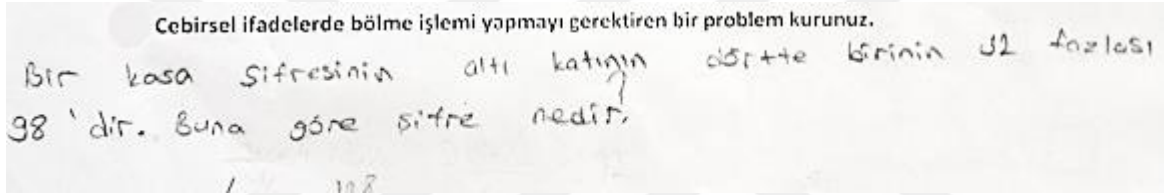 Cebirsel ifadelerde bölme işlemi yapmayı gerektiren bir problem kurunuz.
Bir kasa şifresinin altı katının dörtte birinin 32 fazlası
98'dir. Buna göre şifre nedir?